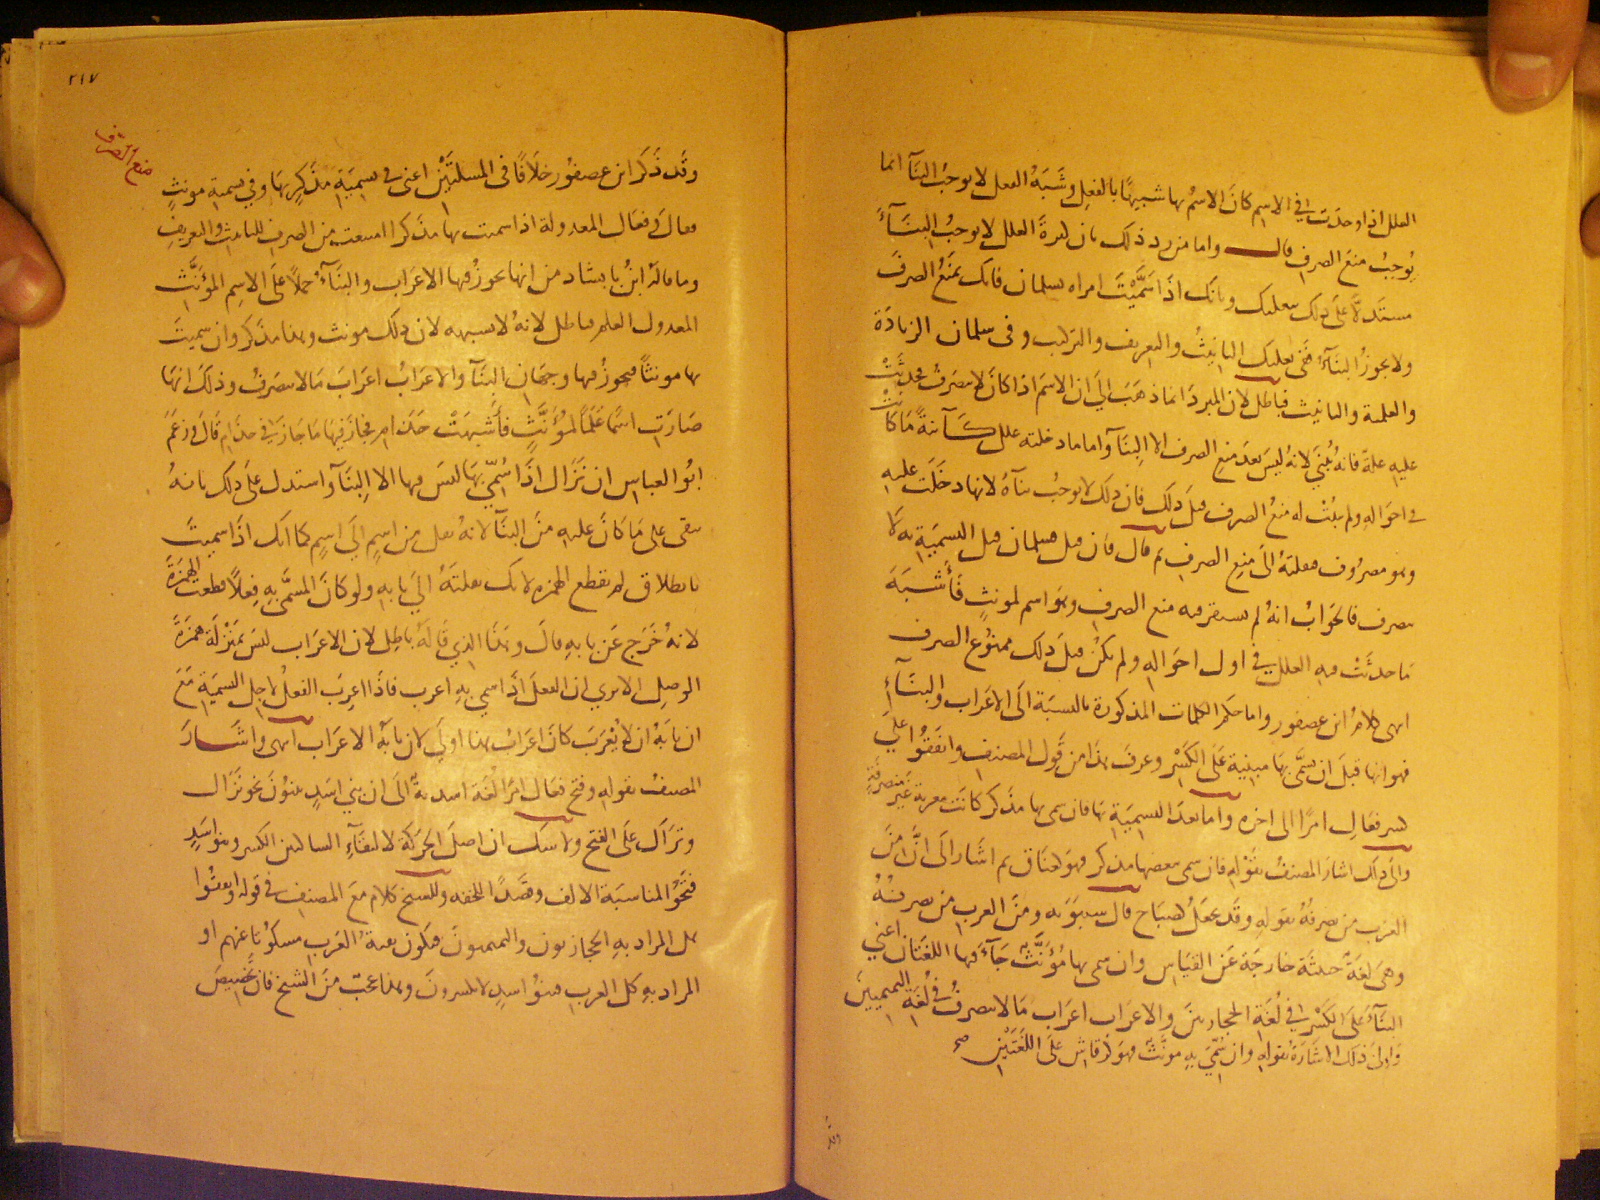 العلل اذا وحدت في الاسم كان الاسم بها شبيهًا بالفعل وشبه الفعل لا يوجب البنآ انما
يوجب منع الصرف قال واما من رد ذلك بان كثرة العلل لا يوجب البنآء
مستدلا على ذلك ببعلبك وبانك اذا سميت امراه بسلمان فانك تمنع الصرف
ولا يجوز البنآء ففي بعلبك التانيث والتعريف والتركيب وفي سلمان الزيادة
والعلمية والتانيث فباطل لان المبرد انما ذهب الي ان الاسم اذا كان لا ينصرف فحدثت
عليه علة فانه يبنى لانه ليس بعد منع الصرف الا البنآ واما ما دخلته علل كآئنة ما كانت
في احواله ولم يثبت له منع الصرف قبل ذلك فان ذلك لا يوجب بنآءً لانها دخلت عليه
وهو مصروف فنقلته الى منع الصرف ثم قال فان قيل فسلمان قبل التسمية به لا
ينصرف فالجواب انه لم يستقر فيه منع الصرف وهو اسم لمونث فأشبه
ما حدثت فيه العلل في اول احواله ولم يكن قبل ذلك ممنوع الصرف
انتهى كلام ابن عصفور واما حكم الكلمات المذكورة بالنسبة الى الاعراب والبنآء
فهو انها قبل ان يسمى بها مبنية على الكسر وعرف هذا من قول المصنف واتفقوا على
كسر فعال امرًا الى اخره واما بعد التسمية بها فان سمى بها مذكر كانت معربة غير منصرفة
والى ذلك اشار المصنف بقوله فان سمى ببعضها مذكر فهو كعناق ثم اشار الى ان من
العرب من يصرفه بقوله وقد يجعل كصباح قال سيبويه ومن العرب من يصرفه
وهي لغة خارجة عن القياس وان سمى بها مؤنث جآء فيها اللغتان اعني
البنآء على الكسر في لغة الحجازيين والاعراب اعراب ما لا ينصرف في لغة التميميين
والى ذلك الاشارة بقوله وان سمي به مونث فهو كرقاش على اللغتين
وقد
٢١٧
منع الصرف
وقد ذكر ابن عصفور خلافًا في المسئلتين اعنى في تسمية مذكر بها وفي تسمية مونث
فعال وفعال المعدولة اذا سميت بها مذكرا امتنعت من الصرف للتانيث والتعريف
وما قاله ابن بابشاد من انها يجوز فيها الاعراب والبنآء حملًا على الاسم المؤنث
المعدول العلم فباطل لانه لا يشبهه لان ذلك مونث وهذا مذكر وان سميت
بها مونثًا فيجوز فيها وجهان البنآ والاعراب اعراب ما لا ينصرف وذلك انها
صارت اسمًا علمًا لمؤنث فأشبهت حذام فجاز فيها ما جاز في حذام قال وزعم
ابو العباس ان نزال اذا سمي بها ليس فيها الا البنآ واستدل على ذلك بانه
يبقى على ما كان عليه من البنآ لانه نقل من اسم الي اسم كما انك اذا سميت
بانطلاق لم يقطع الهمزه لانك نقلته الي بابه ولو كان المسمى به فعلًا قطعت الهمزة
لانه خرج عن بابه قال وهذا الذي قاله باطل لان الاعراب ليس بمنزلة همزة
الوصل الا ترى ان الفعل اذا سمي به اعرب فاذا اعرب الفعل لاجل التسمية مع
ان بابه ان لا يعرب كان اعراب هذا اولى لان بابه الاعراب انتهى واشار
المصنف بقوله وفتح فعال امرًا لغة اسدية الى ان بني اسدٍ يبنون نحو نزال
وتراك على الفتح ولا شك ان اصل الحركة لالتقآء الساكنين الكسر وبنو اسدٍ
فتحوا لمناسبة الالف وقصدًا للخفه وللشيخ كلام مع المصنف في قوله واتفقوا
هل المراد به الحجازيون والتميميون فيكون بقية العرب مسكوتًا عنهم او
المراد به كل العرب فبنو اسد لا يكسرون وهذا عجب من الشيخ فان تخصيص